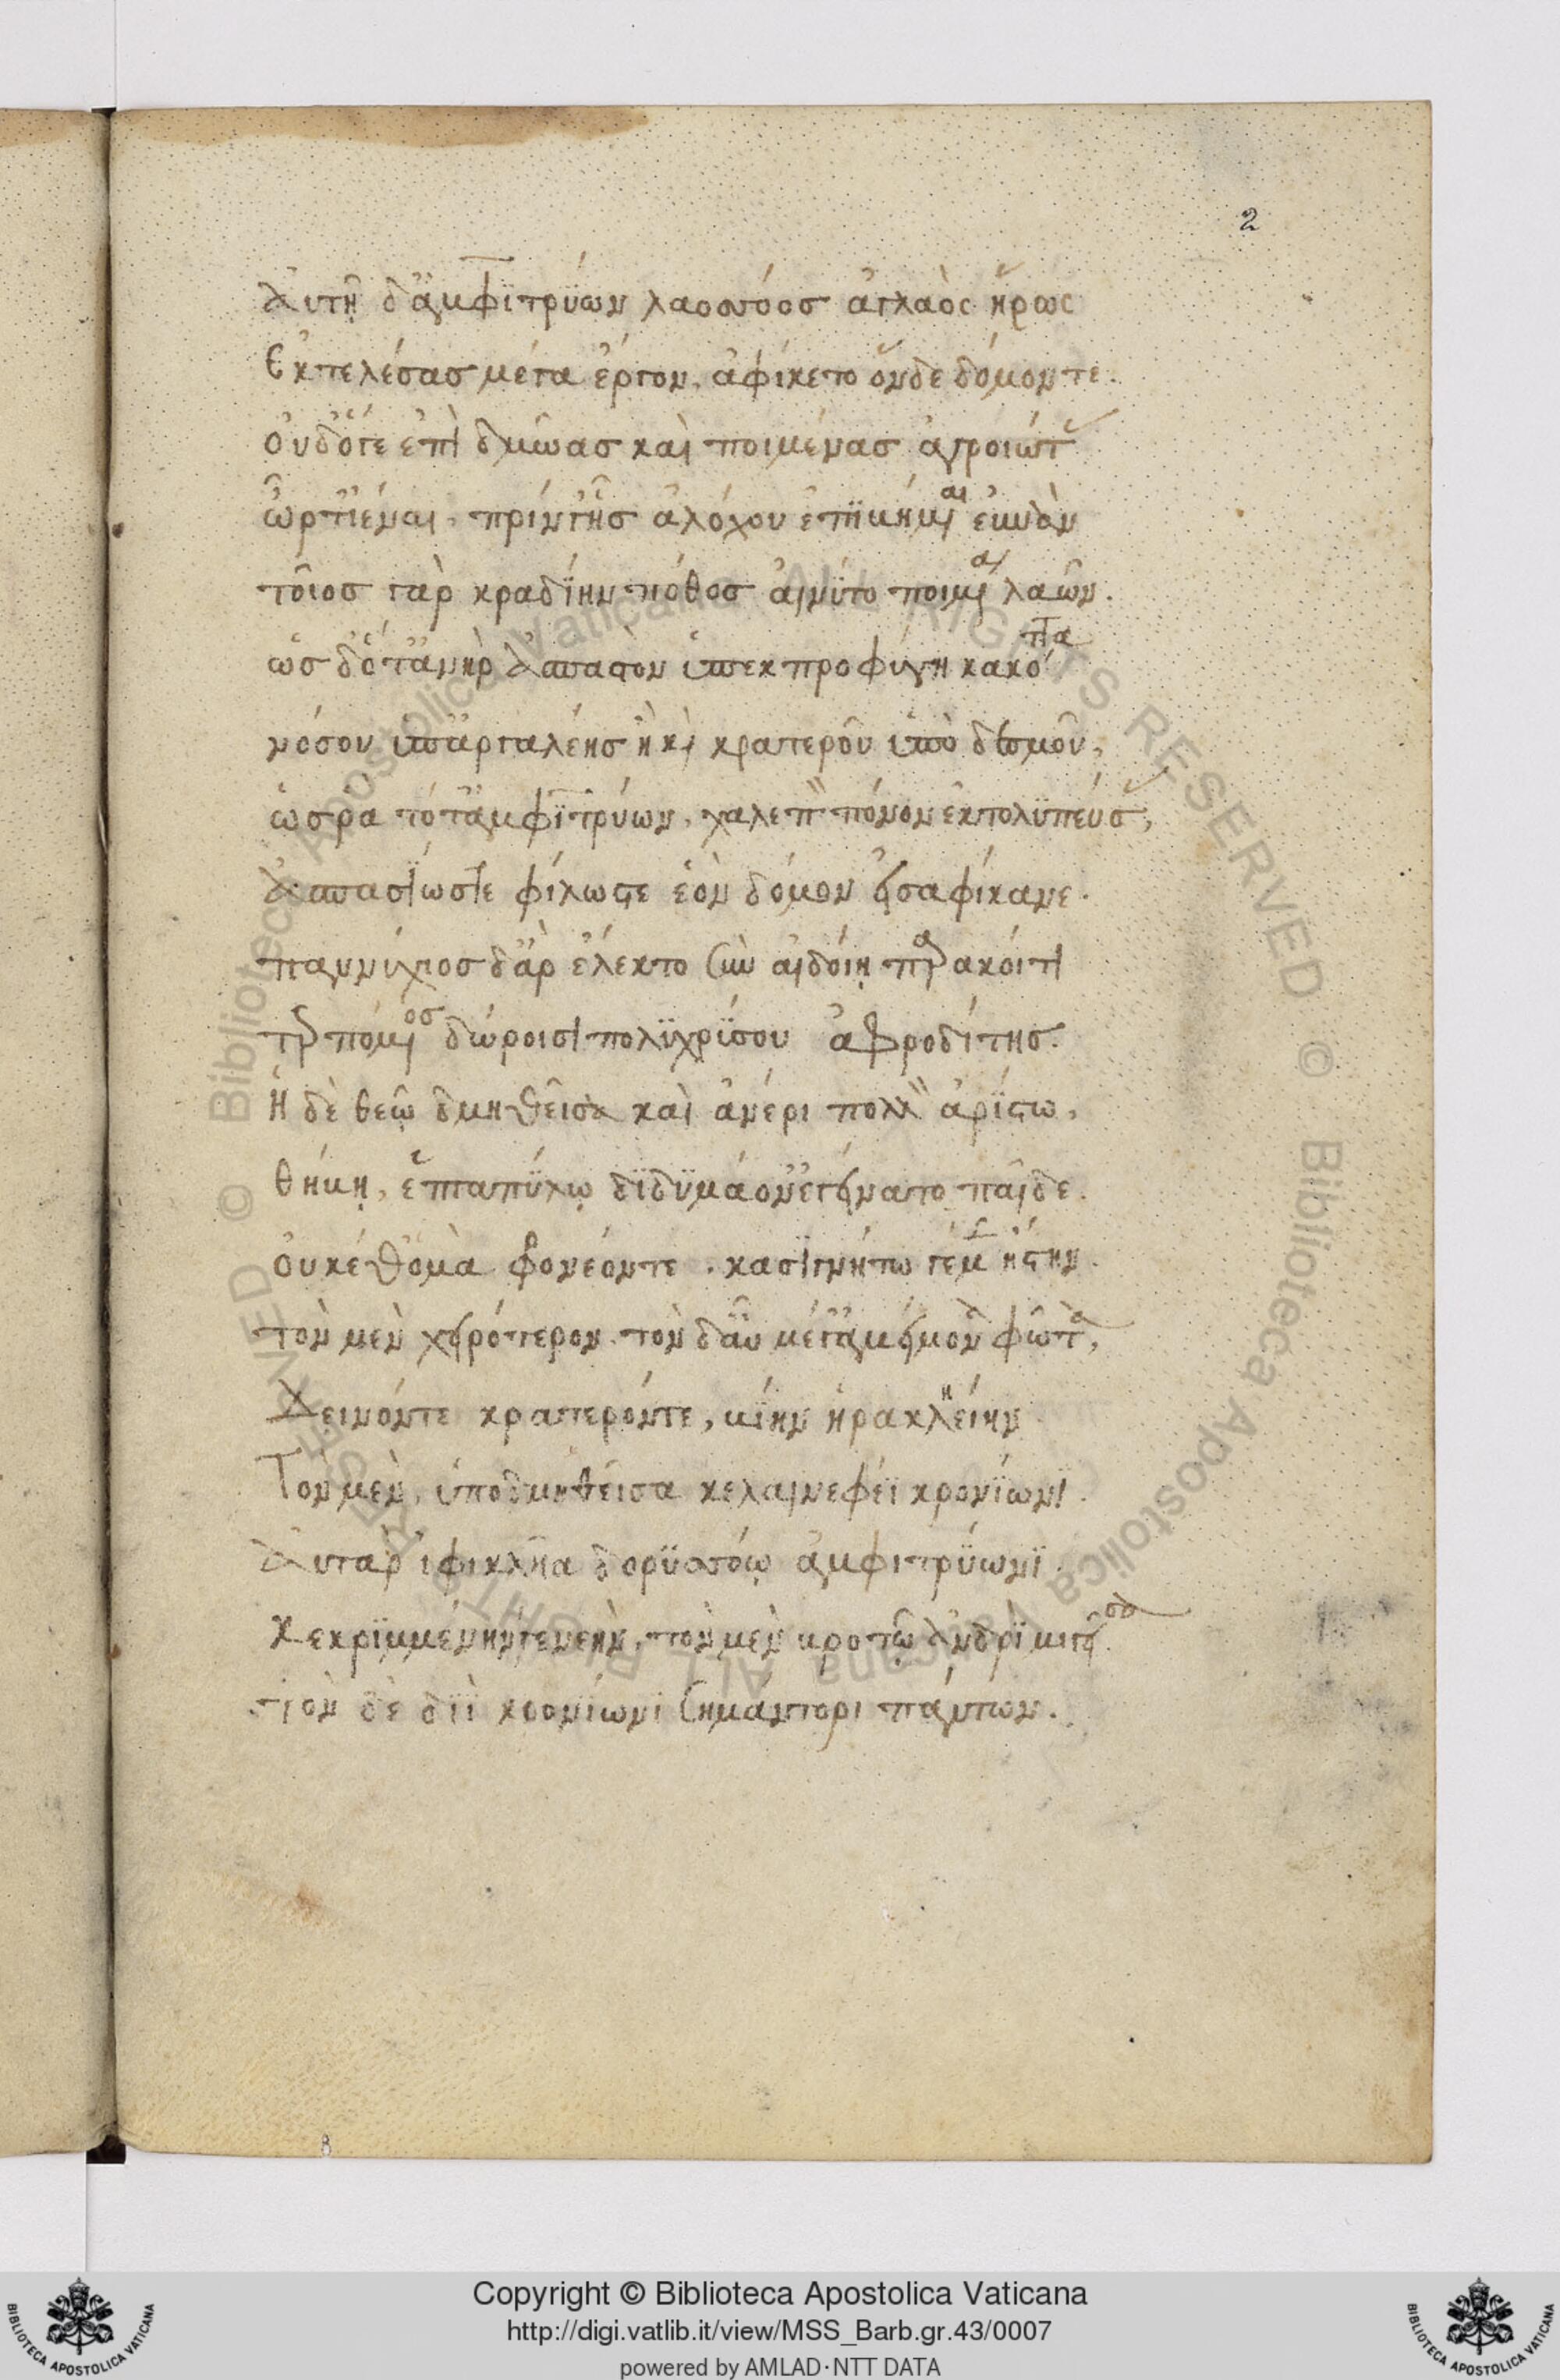 2
Αὐτῆ δ' ἀμφϊτρύων λαοσσόος ἀγλαὸς ἥρως
Ἐκτελέσας μέγα ἔργον, ἀφίκετο ὅνδε δόμοντε.
οὐδ' ὅγε ἐπὶ δμῶας καὶ ποιμένας ἀγροιώτ
ὦρτ' ἰέναι, πρίν γ' ἧς ἀλόχου ἐπιβήμεναι εὐνὰν
τοῖος γὰρ κραδΐην πόθος αἴνυτο ποιμένα λαῶν.
ὡς δ' ὅτ' ἀνὴρ ἀσπαστὸν ὑπεκπροφύγη κακότητα
νόσου ὑπ' ἀργαλέης ἢ καὶ κρατεροῦ ὑπὸ δεσμοῦ,
ὥς ρα τότ' ἀμφϊτρύων, χαλεπὸν πόνον ἐκτολϋπεύσ,
Ἀσπασίως τε φίλως τε ἑὸν δόμον εἰσαφίκανε.
παννύχιος δ' ἄρ' ἔλεκτο σὺν αἰδοίη παρακοίτι
τερπόμενος δώροισι πολϋχρύσου ἀφροδίτης.
Ἡ δὲ θεῶ δμηθεῖσα καὶ ἀνέρι πολλὸν ἀρΐστω,
θήβη, ἑπταπύλω δϊδϋμάονε γείνατο παῖδε.
οὐκέθ' ὁμὰ φρονέοντε. κασιγνήτω γε μὲν ἤστην.
τὸν μὲν χειρότερον. τὸν δ' αὖ μέγ' ἀμείνονα φῶτα,
Δεινόντε κρατερόντε, βΐην ἡρακληείην
Τὸν μὲν, ὑποδμηθεῖσα κελαινεφέϊ κρονΐωνι.
Αὐτὰρ ἰφικλῆα δορϋσσόω ἀμφιτρύωνϊ.
Κεκριμμένην γενεὴν, τὸν μὲν βροτῶ ἀνδρὶ μιγεῖσα.
τὸν δὲ διὶ κρονίωνι σημάντορι πάντων.
Copyright © Biblioteca Apostolica Vaticana
http://digi.vatlib.it/view/MSS_Barb.gr.43/0007
powered by AMLAD·NTT DATA